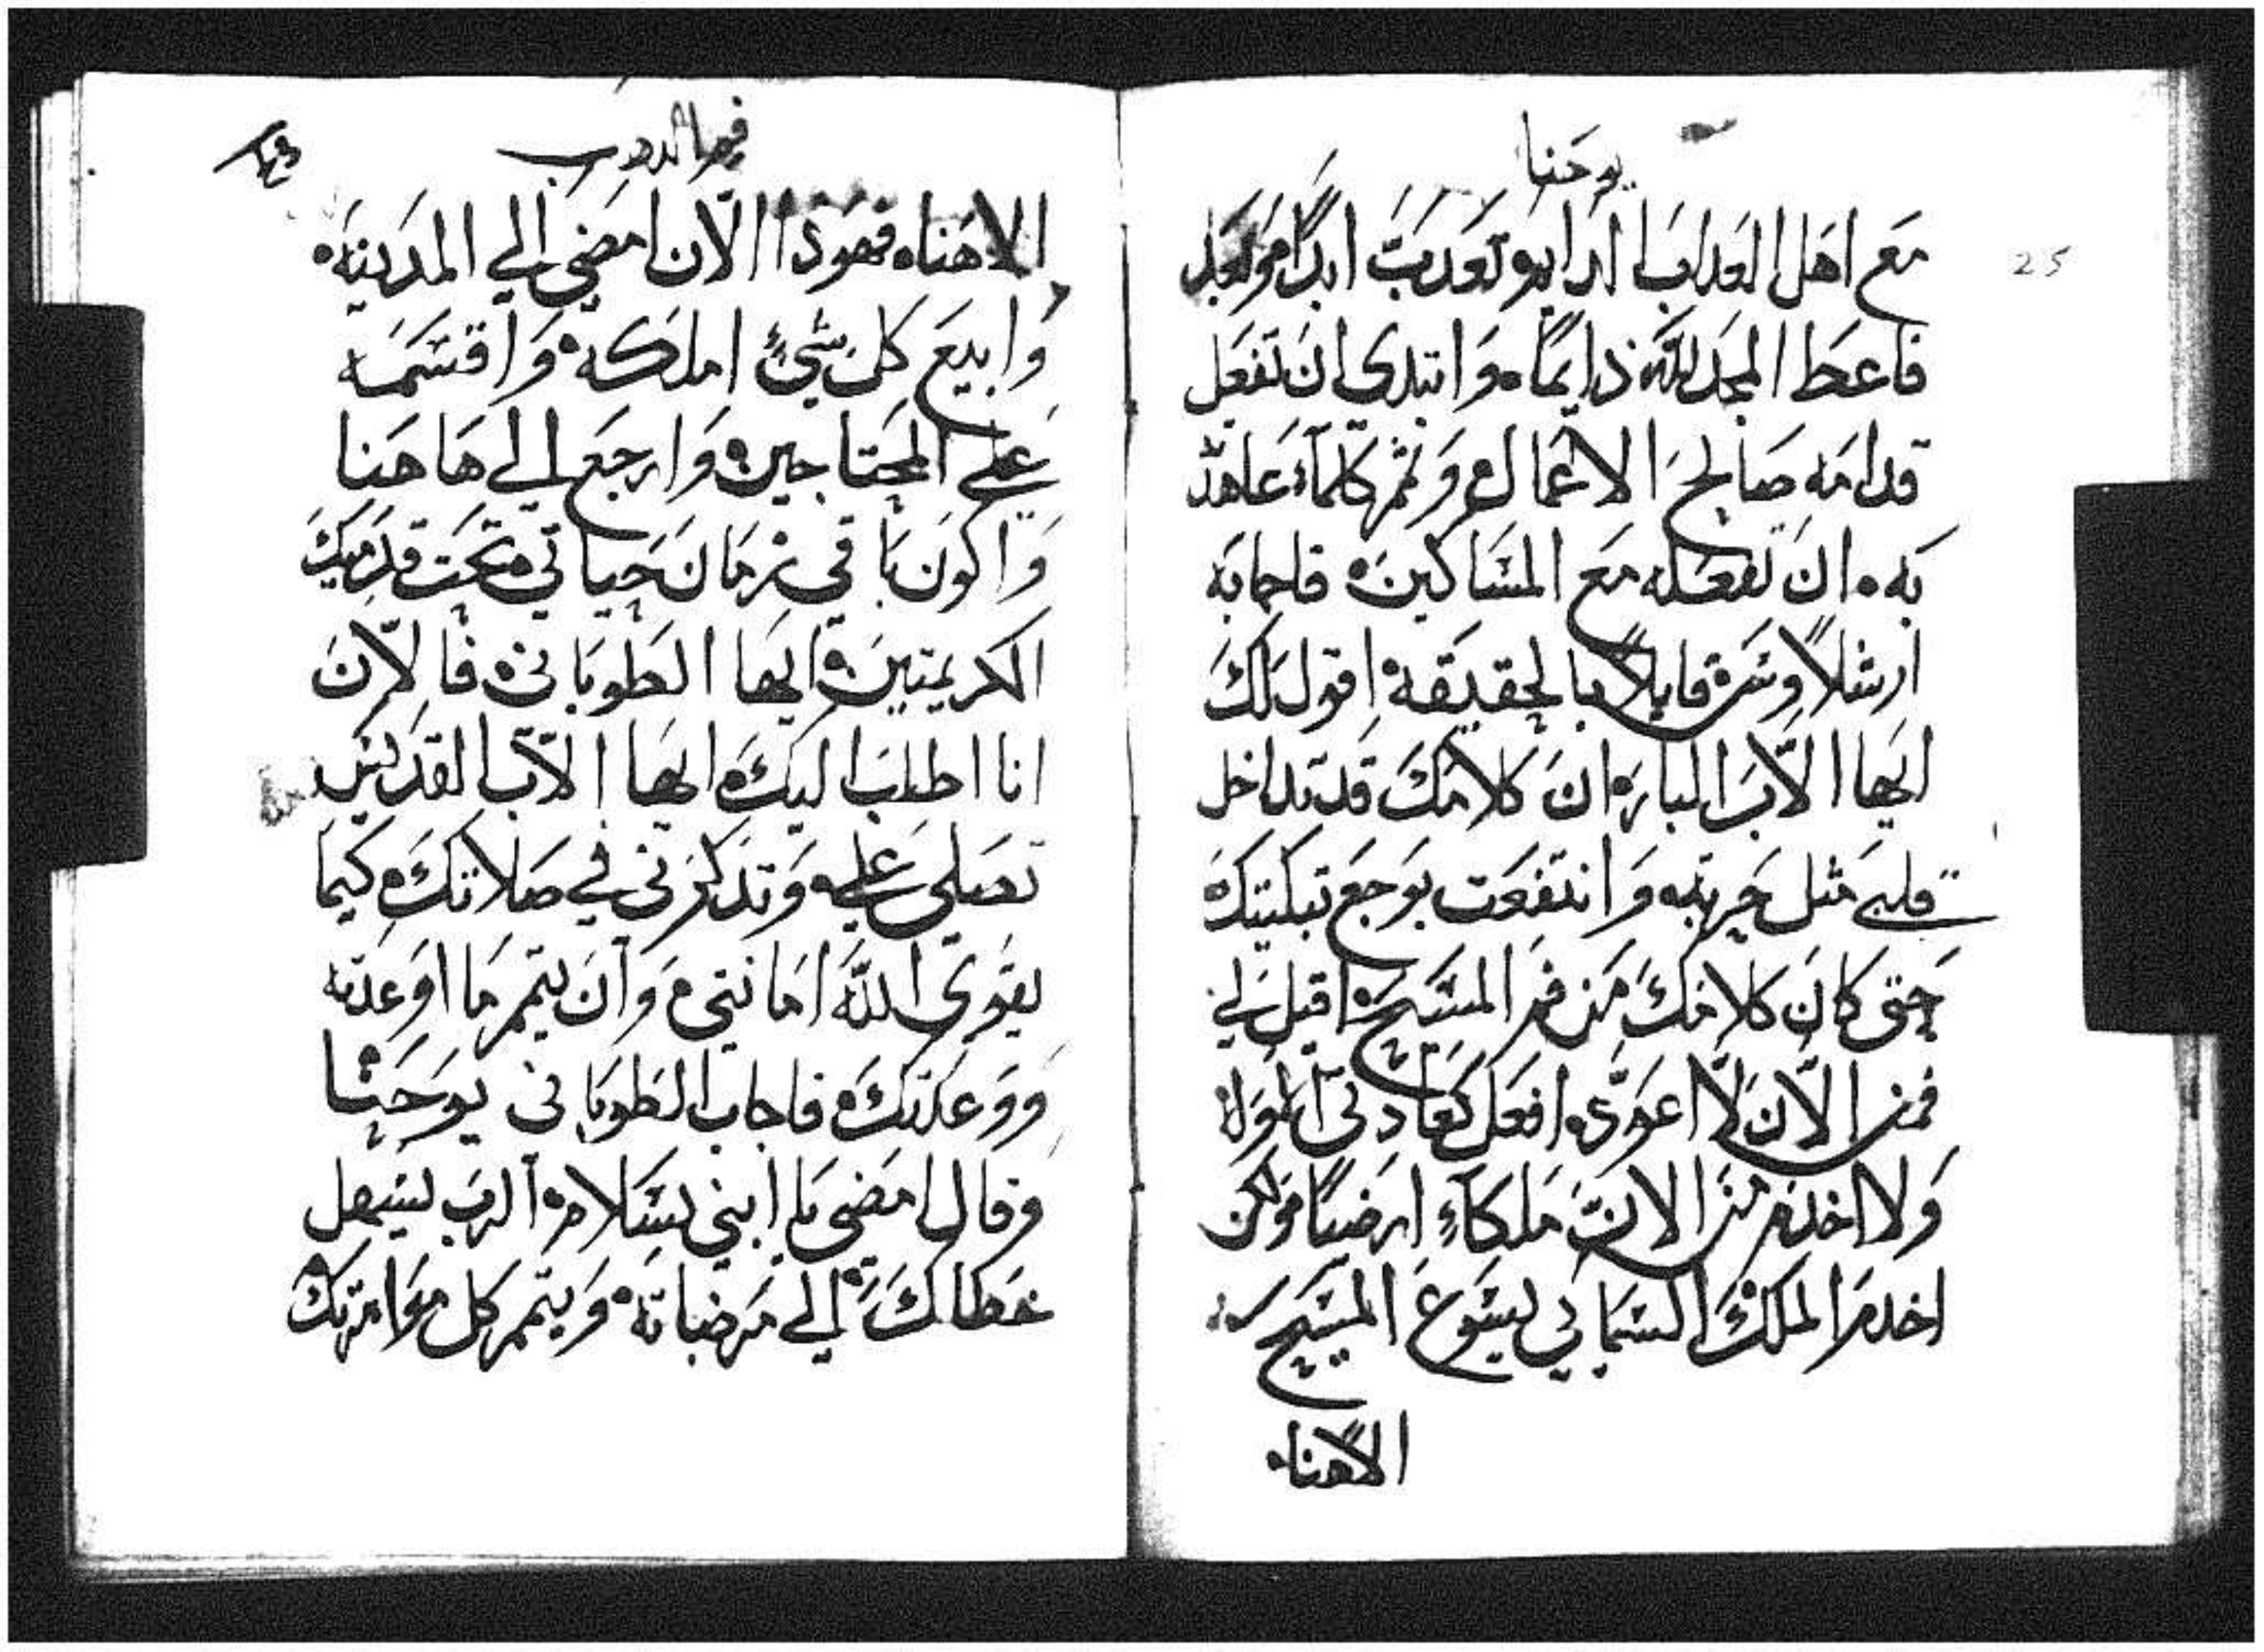 يوحنا
25
مَع اهَل العَدابَ الدايم تعَدبَّ ابدًا
فاعطَ المجَد للّه دايمًا ه وَابتدي انَ تفعَل
قدامَه صَالحَ الاعمال ه وَتمم كلمآء عَاهدّ
بَه ه انَ تفعَله مَع المسَاكينَ ه فاجابَه
ارشلاوسَ ه قايلاً بالحقيَقه اقول لكَ
ايهَا الآبَ البار ه انَ كلامَكَ قد تداخل
قلبي مَثل حَربَه وَانتفعَت بوَجعَ تبكيتكَ ه
حَتى كانَ كلامَكَ مَن فمَ المسَيحَ ه اقبل لي
فمن الآنَ لآ اعوَدّ افعَل كعَادتي الاوَله
وَلا اخدمَ مَن الانَ مَلكآءِ ارضيًا ه وَلكن
اخدمَ الملكَ السَماِئي يسَوعَ المسَيحَ
الاهنا ه
فيم الدهب
الاهَنا ه فهوَذا الآن امَضي الي المدَينَه ه
وَابيعَ كلَ شيئ املكه ه وَاقسَمَه
عَلي المحَتاجين ه وَارجَع الي هَاهَنا
وَاكونَ بَاقي زمَانَ حَياتي ه تحَت قدَميكَ
الكريمتينَ ه ايهَا الطوبَاني ه فَالآنَ
انا اطلبَ اليكَ ه ايهَا الآبَ القدَيسَ
تصَلي عَلي ه وَتدَكرَني في صَلاتكَ ه كيمَا
يقوَي اللهَ امَانتي ه وَانَ يتمم مَا اوَعدته
وَوَعَدتكَ ه فاجابَ الطوبَاني يوَحَنا
وَقال امَضي يَا ابني بسَلام ه الربَ يسَهل
خَطاكَ ه الي مَرضاتهَ ه وَيتمم كل مَوامرتكَ